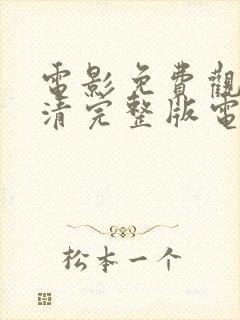 電影免費觀
清完整版電
松本一个